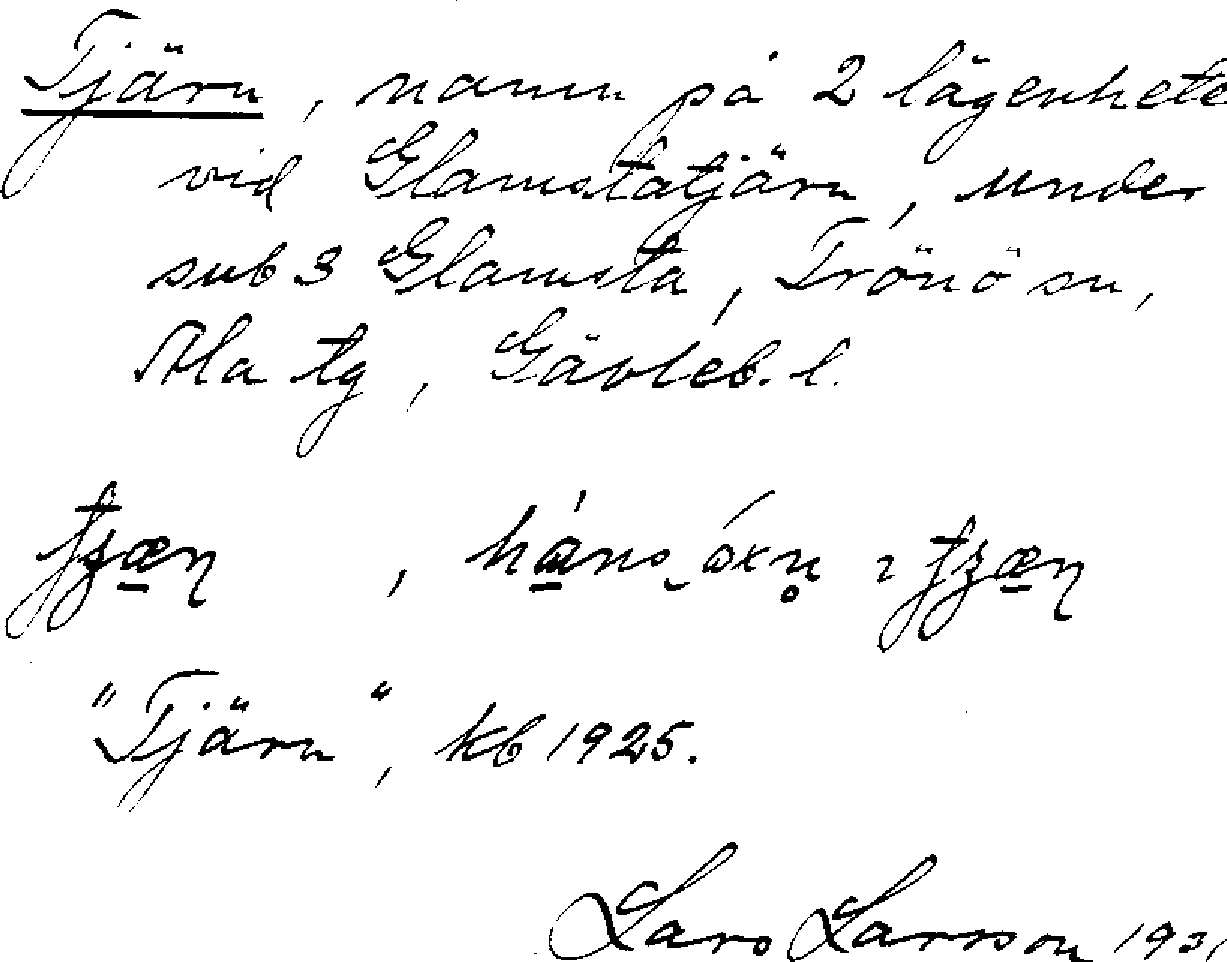 Tjärn, namn på 2 lägenhete
vid Glamstatjärn, under
sub 3 Glamsta, Trönö sn,
Ala tg, Gävleb. l.
"Tjärn", kb 1925.
Lars Larsson 193